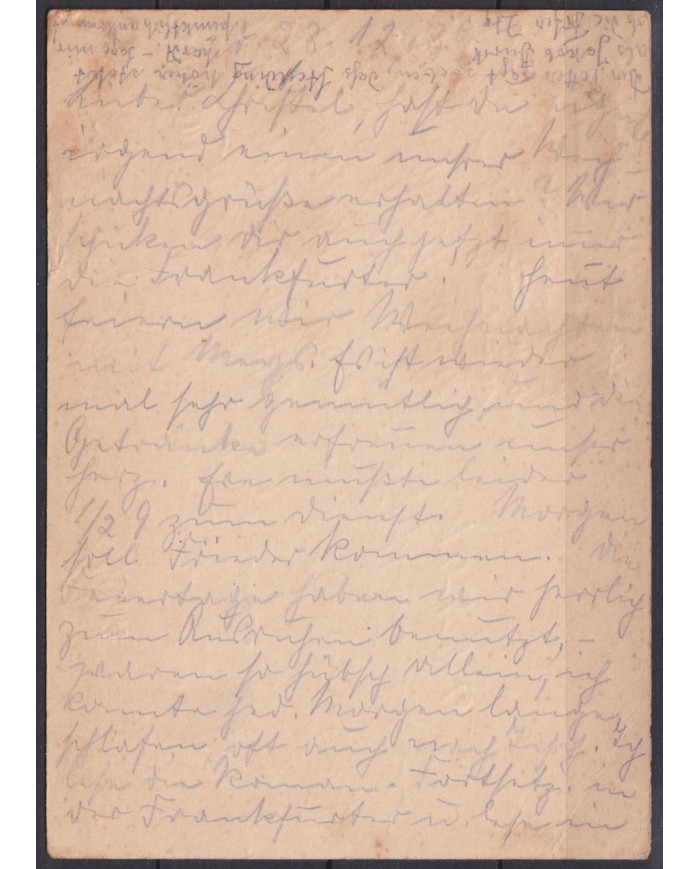 28. 12.
Lieber Christel, hast Du
irgend einen unsrer Weih
nachtsgrüße erhalten? Wir
schicken Dir auch jetzt immer
die Frankfurter. Heut
feiern wir Weihnachten
mit Meys. Es ist wieder
mal sehr gemütlich und die
Getränke erfreuen unser
Herz. Eve mußte leider
1/2 9 zum Dienst. Morgen
soll Frieder kommen. Die
Feiertage haben wir herrlich
zum Ausruhen benutzt, –
waren so hübsch allein, ich
konnte jed. Morgen lange
schlafen, oft auch nach Tisch. Ich
lese die Roman-Fortsetz. in
der Frankfurter u. lese in